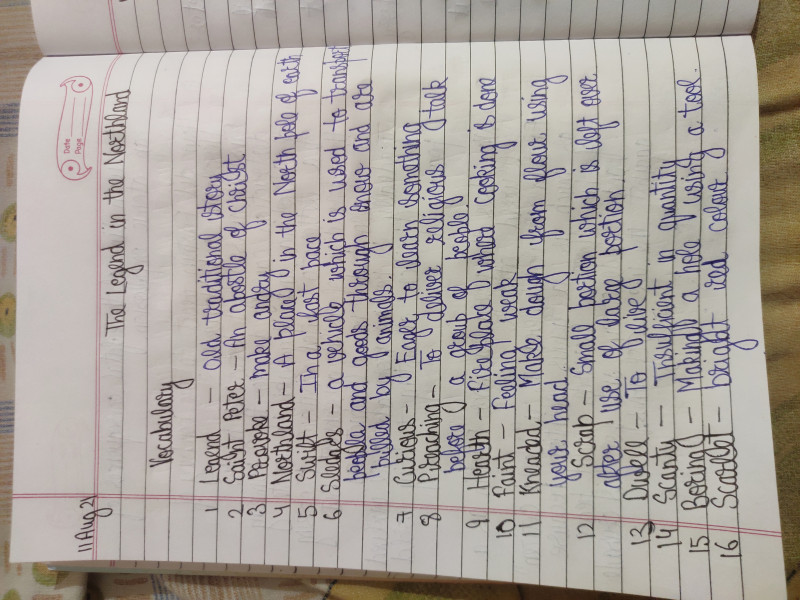 Date
Page
11 Aug 21
The Legend in the Northland
Vocabulary
1 Legend - Old traditional story
2 Saint Peter - An apostle of Christ
3 Provoke - make angry
4 Northland - A place in the North pole of earth
5 Swift - In a fast pace
6 Sledges - a vehicle which is used to transport
people and goods through snow and are
pulled by animals.
7 Curious - Eager to learn something
8 Preaching - To deliver religious talk
before a group of people
9 Hearth - Fireplace where cooking is done
10 Faint - Feeling weak
11 Kneaded - Make dough from flour using
your head
12 Scrap - Small portion which is left over
after use of large portion
13 Dwell - To live
14 Scanty - Insufficient in quantity
15 Boring - Making a hole using a tool.
16 Scarlet - bright red colour